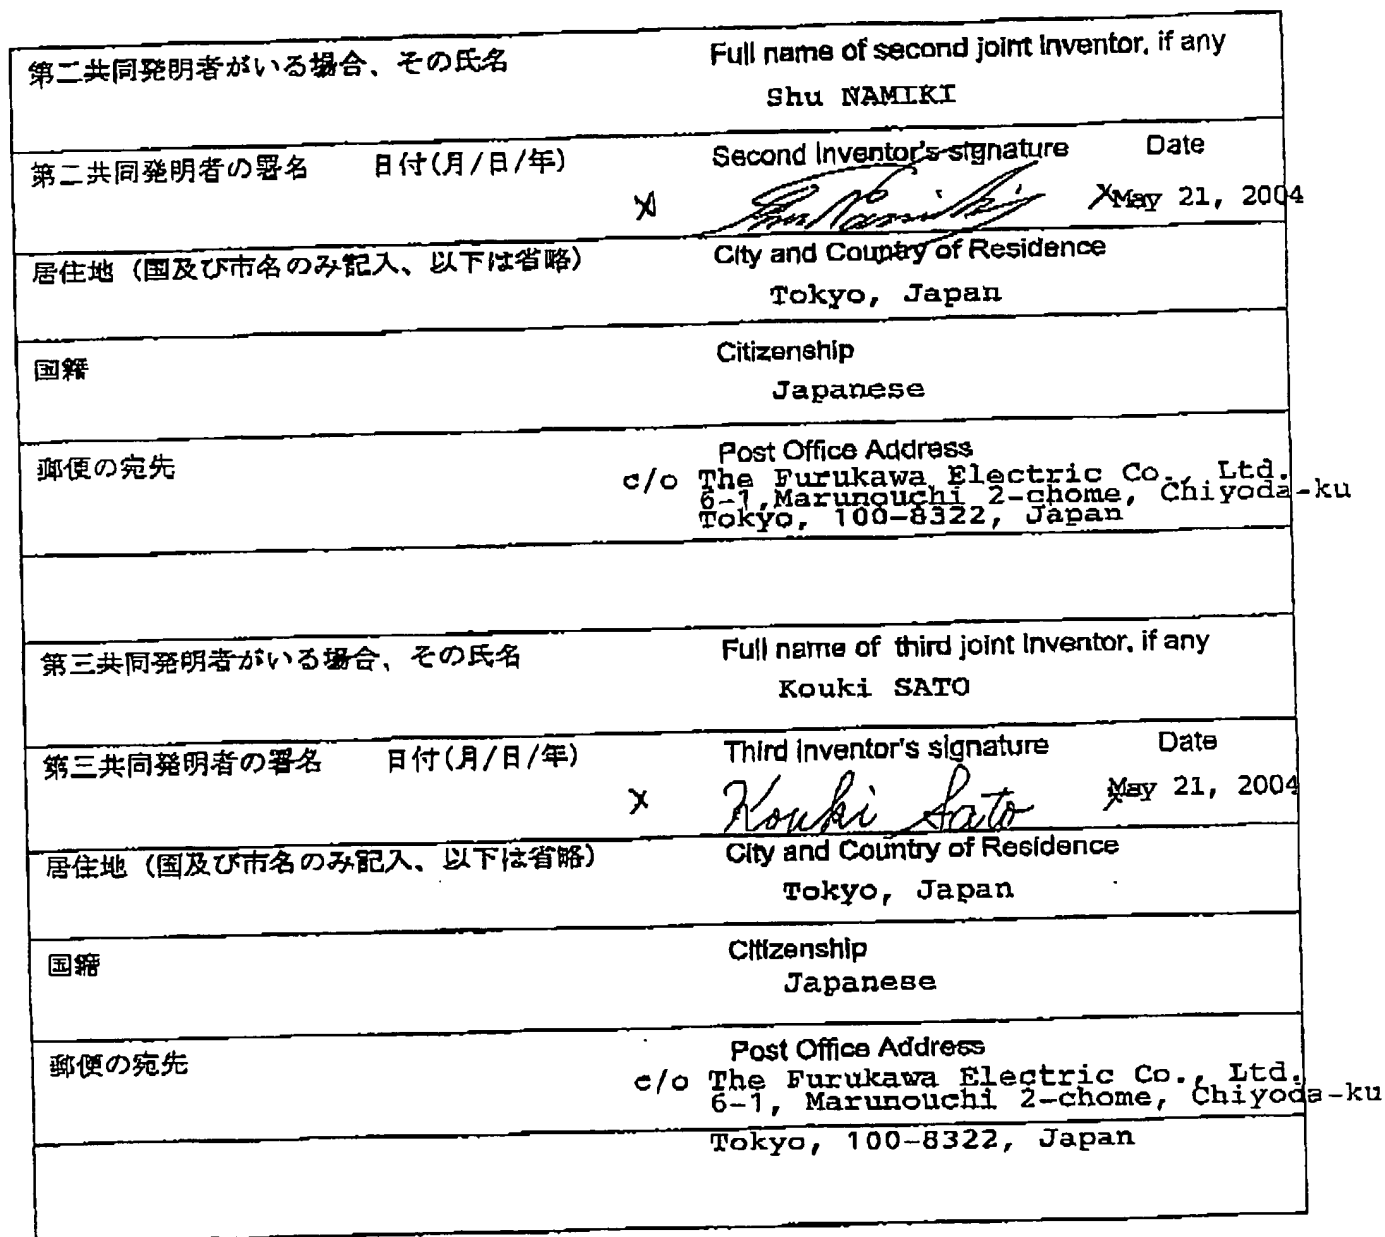 第二共同発明者がいる場合、その氏名 Full name of second joint inventor, if any
Shu NAMIKI
第二共同発明者の署名 日付(月/日/年) Second inventor's signature Date
X Shu Namiki X May 21, 2004
居住地（国及び市名のみ記入、以下は省略） City and Country of Residence
Tokyo, Japan
国籍 Citizenship
Japanese
郵便の宛先 Post Office Address
c/o The Furukawa Electric Co., Ltd.
6-1,Marunouchi 2-chome, Chiyoda-ku
Tokyo, 100-8322, Japan
第三共同発明者がいる場合、その氏名 Full name of third joint inventor, if any
Kouki SATO
第三共同発明者の署名 日付(月/日/年) Third inventor's signature Date
X Kouki Sato X May 21, 2004
居住地（国及び市名のみ記入、以下は省略） City and Country of Residence
Tokyo, Japan
国籍 Citizenship
Japanese
郵便の宛先 Post Office Address
c/o The Furukawa Electric Co., Ltd.
6-1, Marunouchi 2-chome, Chiyoda-ku
Tokyo, 100-8322, Japan